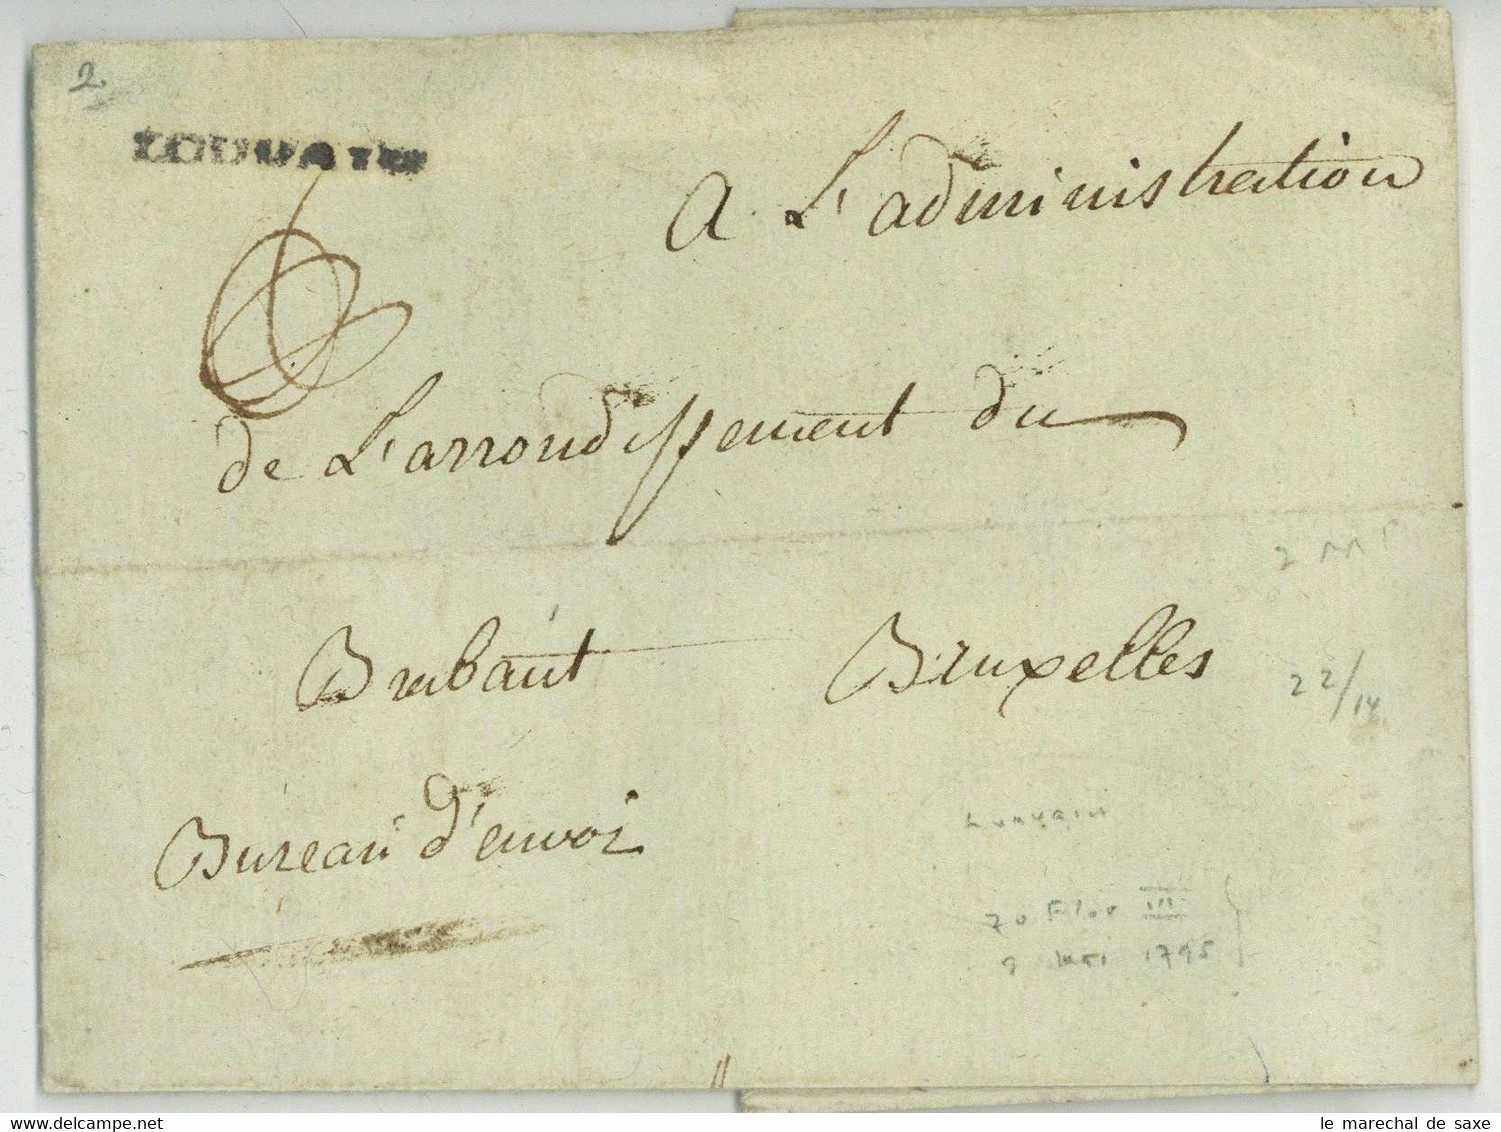 2
LOUVAIN
A L'administration
de L'arrondissement du
Brabant Bruxelles
22/14
Bureau d'envoi
Louvain
20 Flor III
9 Mai 1795
le marechal de saxe